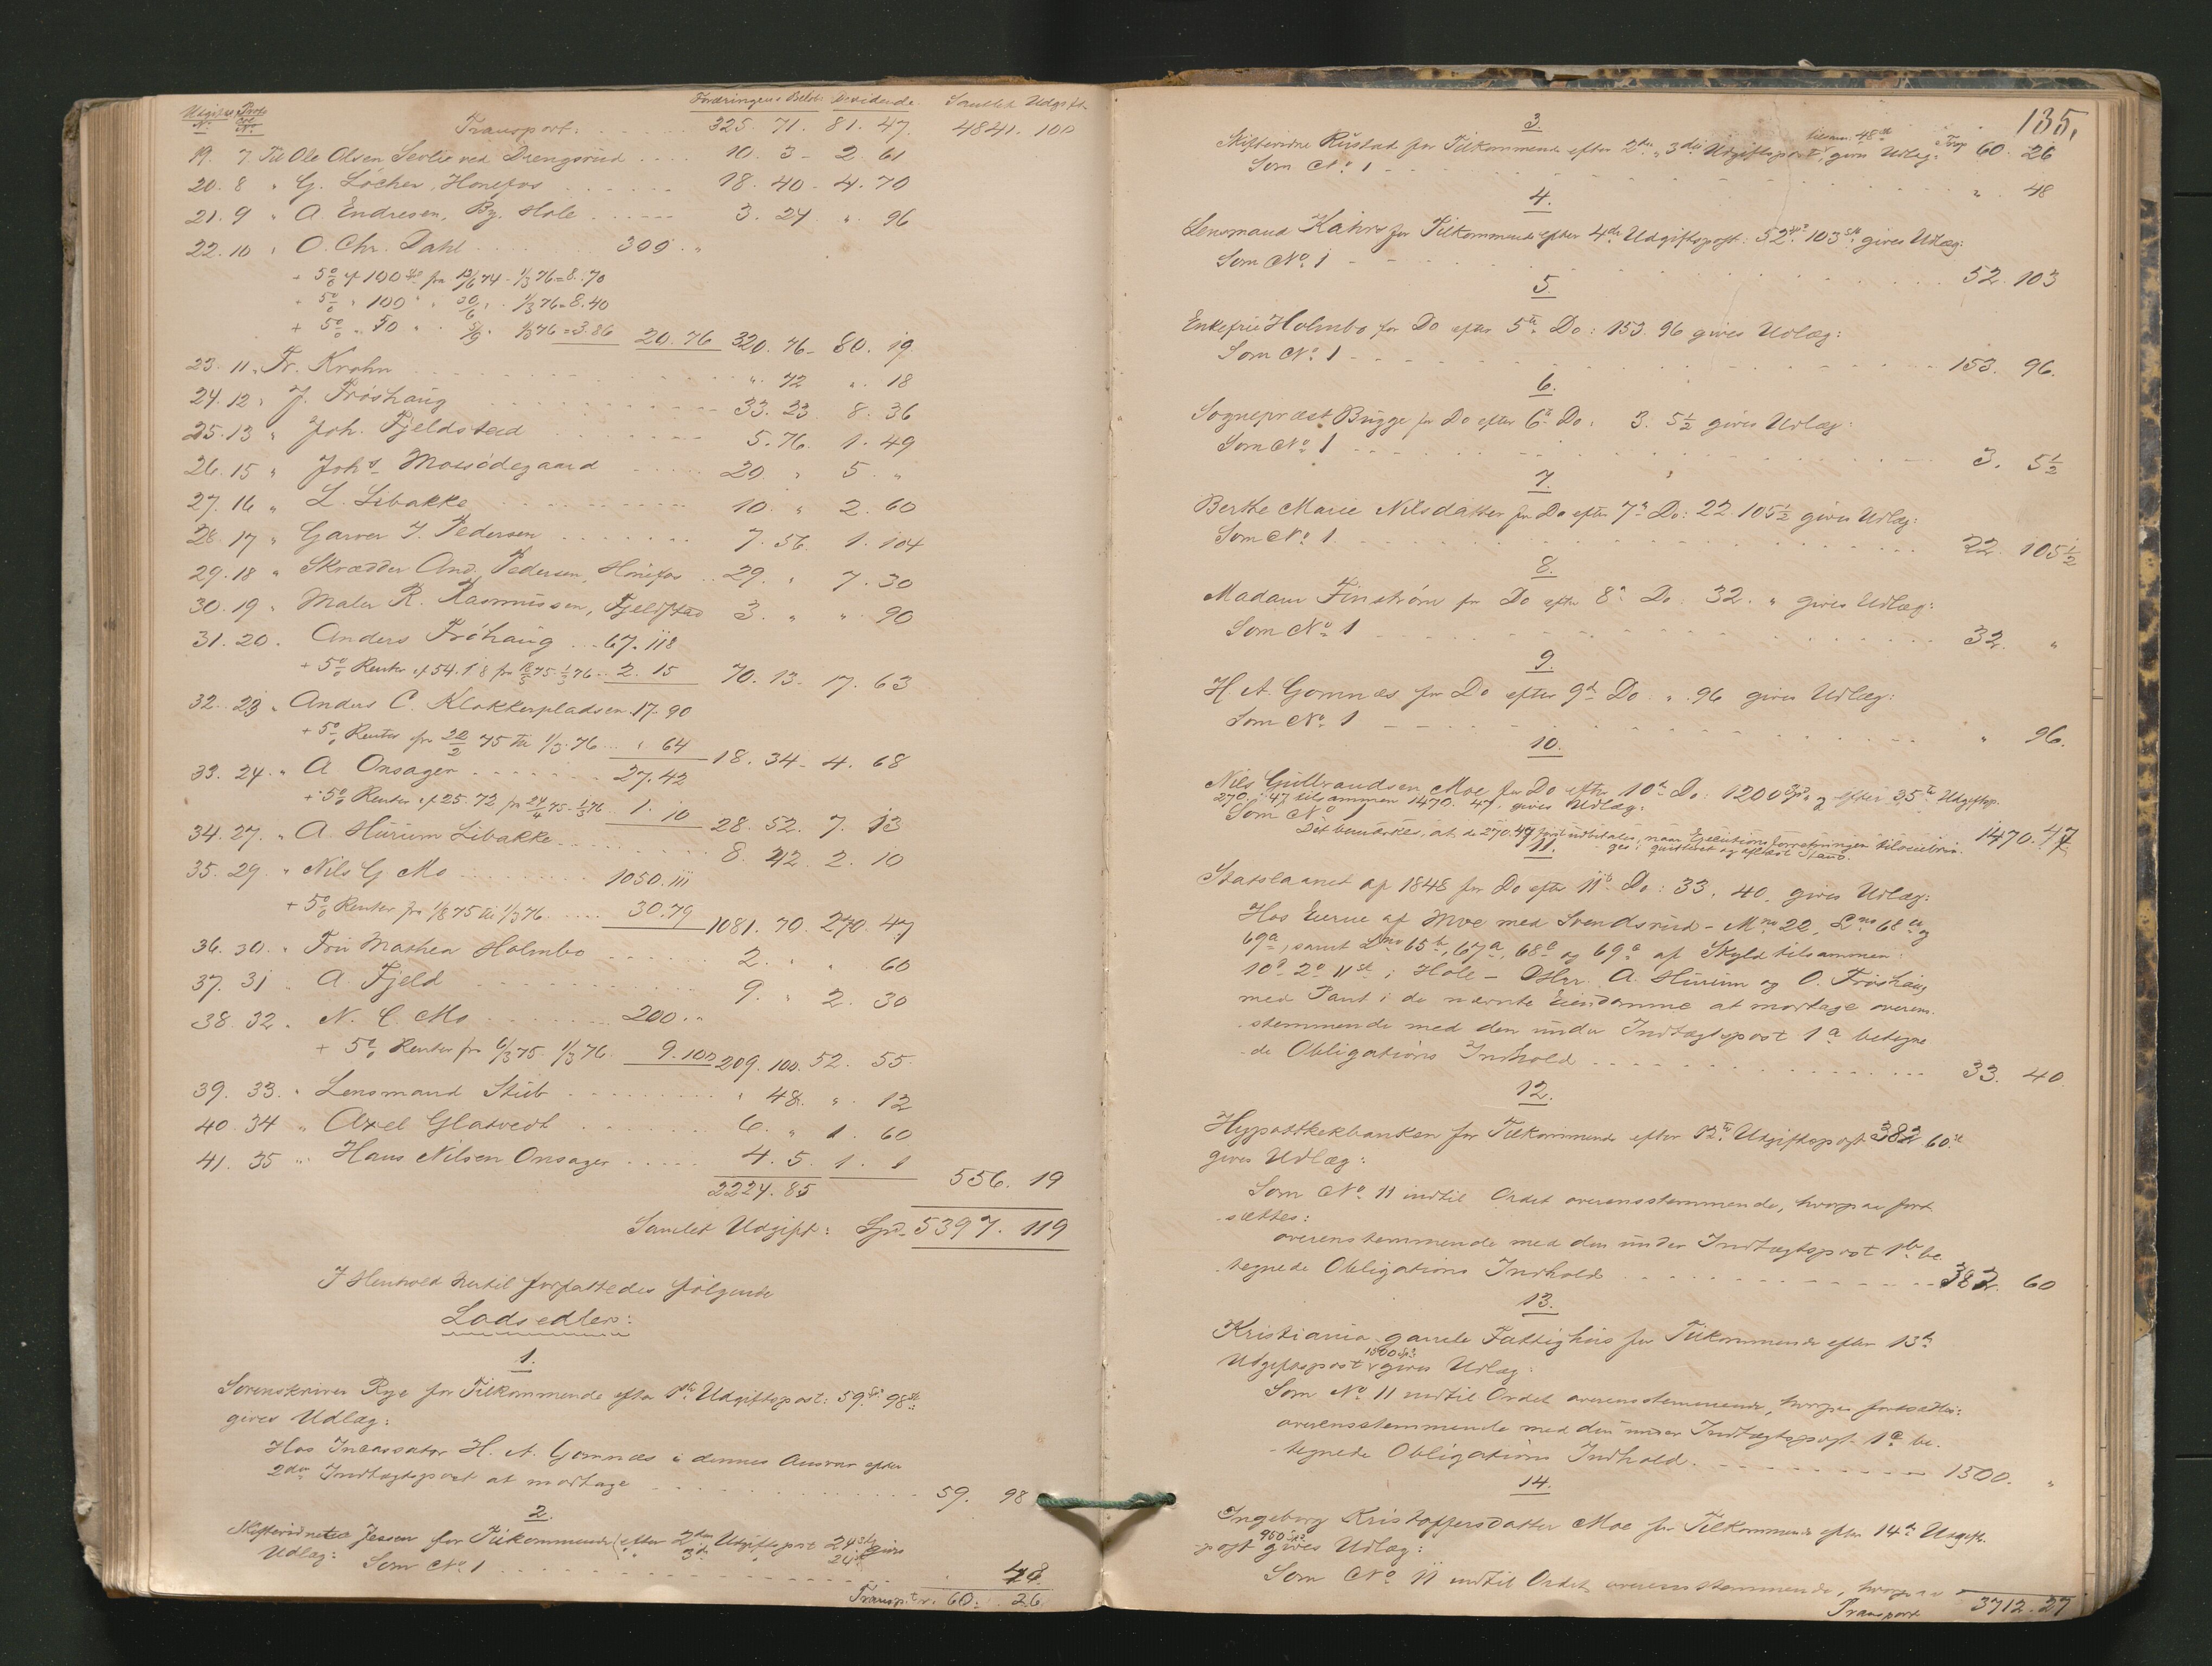 Udgifts Prot
No: col No. Fordringens Beløb: Dividende. Samlet Udgift
Transport: 325. 71. 81. 47. 4841. 100
19. 7. Til Ole Olsen ved Drengsrud 10. 3 - 2. 61
20. 8 " G. Löcher, Hönefos 18. 40 - 4. 70
21. 9 " A. Endresen, By, Hole 3. 24 " 96
22. 10 " O. Chr. Dahl 309 "
+ 5% af 100 fra 74 - 1/3 76 = 8. 70
+ 5% " 100 " 1/3 76 = 8. 40
+ 5% " 50 " 5/9 1/3 76 = 3. 86 20. 76 320. 76 - 80. 19
23. 11. Fr. Krohn " 72 " 18
24. 12. J. Fröshaug 33. 23 8. 36
25. 13 " Joh. Fjeldstad 5. 76. 1. 49
26. 15 " Johs. Mossödegaard 20 " 5 "
27. 16 " L. Libakke 10. " 2. 60
28. 17 " Garver J. Pedersen 7. 56. 1. 104
29. 18 " Skrædder And. Pedersen, Hönefos 29. " 7. 30
30. 19 " Maler R. Rasmussen, Fjeldstad 3. " " 90
31. 20. Anders Fröhaug 67. 118
+ 5% Renter af 54. 18 fra 75 - 1/3 76 2. 15 70. 13 - 17. 63
32. 23. Anders C. Klokkerpladsen 17. 90
+ 5% Renter fra 22/2 75 til 1/3 76 " 64 18. 34 - 4. 68
33. 24. " A Onsager 27. 42
+ 5% Renter af 25. 72 fra 24/4 75 - 1/3 76 1. 10 28. 52. 7. 13
34. 27. " A. Hurum Libakke 8. 42. 2. 10
35. 29. " Nils G Mo 1050. 111
+ 5% Renter fra 1/8 75 til 1/3 76 30. 79 1081. 70. 270. 47
36. 30. " Fru Mathea Holmbo 2. " " 60
37. 31 " A. Fjeld 9. " 2. 30
38. 32. " N. C. Mo 200. "
+ 5% Renter fra 6/3 75 - 1/3 76. 9. 100 209. 100. 52. 55.
39. 33. " Lensmand Stub " 48. " 12
40. 34 " Axel Glatvedt 6. " 1. 60
41. 35 " Hans Nilsen Onsager 4. 5. 1. 1
2224. 85 556. 19
Samlet Udgift: Spd. 5397. 119
I Henhold hertil forfattedes følgende
Lodsedler:
1.
Sorenskriver Rye for Tilkommende efter 1ste Udgiftspost: 59 Sp 98 sk
gives Udlæg:
Hos Incassator H. A. Gomnæs i dennes Ansvar efter
2den Indtægtspost at modtage 59. 98
2.
Skiftevidnet Jessen for Tilkommende efter 2den Udgiftspost 24 sk gives
" 3die " 24
Udlæg: Som No 1 48
Transport 60. 26.
135.
3.
Skiftevidne Rustad for Tilkommende efter 2den, 3die Udgiftspost tilsam: 48 sk gives Udlæg: Trsp 60. 26
Som No: 1 " 48
4.
Lensmand Kahrs for Tilkommende efter 4de Udgiftspost: 52 103 gives Udlæg:
Som No. 1 52. 103
5.
Enkefru Holmbo for Do efter 5te Do: 153. 96 gives Udlæg:
Som No. 1 153. 96.
6.
Sognepræst Bugge for Do efter 6te Do: 3. 5½ gives Udlæg:
Som No. 1 3. 5½
7.
Berthe Marie Nilsdatter for Do efter 7de Do: 22. 105½ gives Udlæg:
Som No. 1. 22. 105½
8.
Madam Finström for Do efter 8de Do. 32. " gives Udlæg:
Som No 1 32. "
9.
H. A. Gomnæs for Do efter 9de Do. " 96 gives Udlæg:
Som No. 1 " 96.
10.
Nils Gulbrandsen Moe for Do efter 10de Do: 1200 Spd og efter 35te Udgiftsp.
270. 47 tilsammen 1470. 47. gives Udlæg:
Som No 1 1470. 47
Det bemærkes, at de 270. 47 først udbetales, naar Executionsforretningen tilveiebrin-
ges i quitteret og aflæst Stand.
11.
Statslaanet af 1848 for Do efter 11te Do: 33. 40. gives Udlæg:
Hos Eierne af Moe med Svendsrud - Mno 22, Lno 68 og
69a, samt Lno 65b, 67a, 68 og 69 af Skyld tilsammen:
10 2 11 i Hole - Hrr. A. Hurum og O. Fröshaug
med Pant i de nævnte Eiendomme at modtage overens-
stemmende med den under Indtægtspost 1a betegne-
de Obligations Indhold 33. 40.
12.
Hypothekbanken for Tilkommende efter 12te Udgiftspost 382 60
gives Udlæg:
Som No. 11 indtil Ordet overensstemmende, hvorpaa fort
sættes:
overensstemmende med den under Indtægtspost 1b be
tegnede Obligations Indhold 382. 60
13.
Kristiania gamle Fattighus for Tilkommende efter 13de
Udgiftspost 1500 Spd gives Udlæg:
Som No. 11 indtil Ordet overensstemmende, hvorpaa fortsættes:
overensstemmende med den under Indtægtspost 1c be-
tegnede Obligations Indhold. 1500. "
14.
Ingeborg Kristoffersdatter Moe for Tilkommende efter 14de Udgifts-
post 950 Spd gives Udlæg:
Som No. 11 indtil Ordet overensstemmende, hvorpaa
Transport 3712. 27